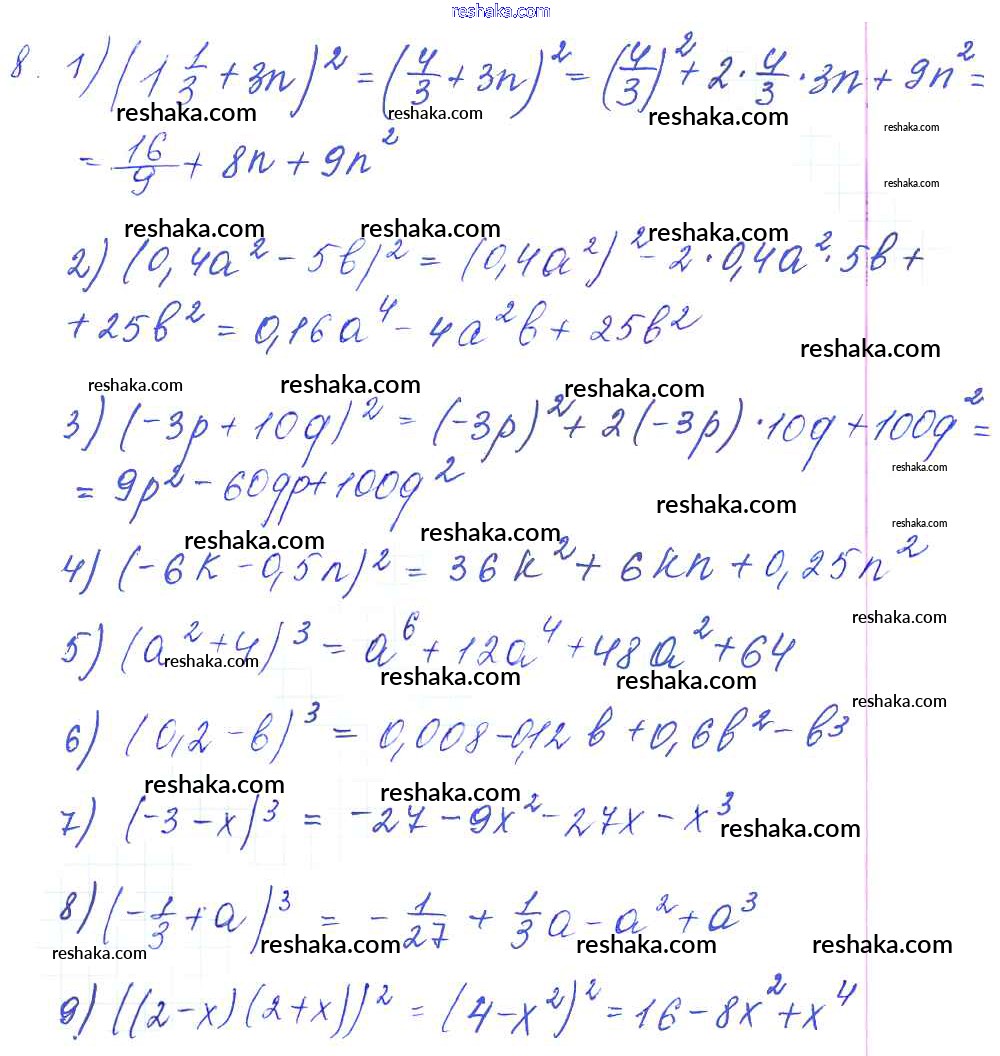 reshaka.com
8. 1) (1 1/3 + 3n)² = (4/3 + 3n)² = (4/3)² + 2·4/3·3n + 9n² =
reshaka.com reshaka.com reshaka.com reshaka.com
= 16/9 + 8n + 9n²
reshaka.com
reshaka.com reshaka.com reshaka.com
2) (0,4a² - 5b)² = (0,4a²)² - 2·0,4a²·5b +
+ 25b² = 0,16a⁴ - 4a²b + 25b²
reshaka.com
reshaka.com reshaka.com reshaka.com
3) (-3p + 10q)² = (-3p)² + 2(-3p)·10q + 100q² =
reshaka.com
= 9p² - 60qp + 100q²
reshaka.com
reshaka.com reshaka.com reshaka.com
4) (-6k - 0,5n)² = 36k² + 6kn + 0,25n²
reshaka.com
5) (a² + 4)³ = a⁶ + 12a⁴ + 48a² + 64
reshaka.com reshaka.com reshaka.com
reshaka.com
6) (0,2 - b)³ = 0,008 - 0,12b + 0,6b² - b³
reshaka.com reshaka.com
7) (-3 - x)³ = -27 - 9x² - 27x - x³
reshaka.com
8) (-1/3 + a)³ = -1/27 + 1/3a - a² + a³
reshaka.com reshaka.com reshaka.com reshaka.com
9) ((2 - x)(2 + x))² = (4 - x²)² = 16 - 8x² + x⁴